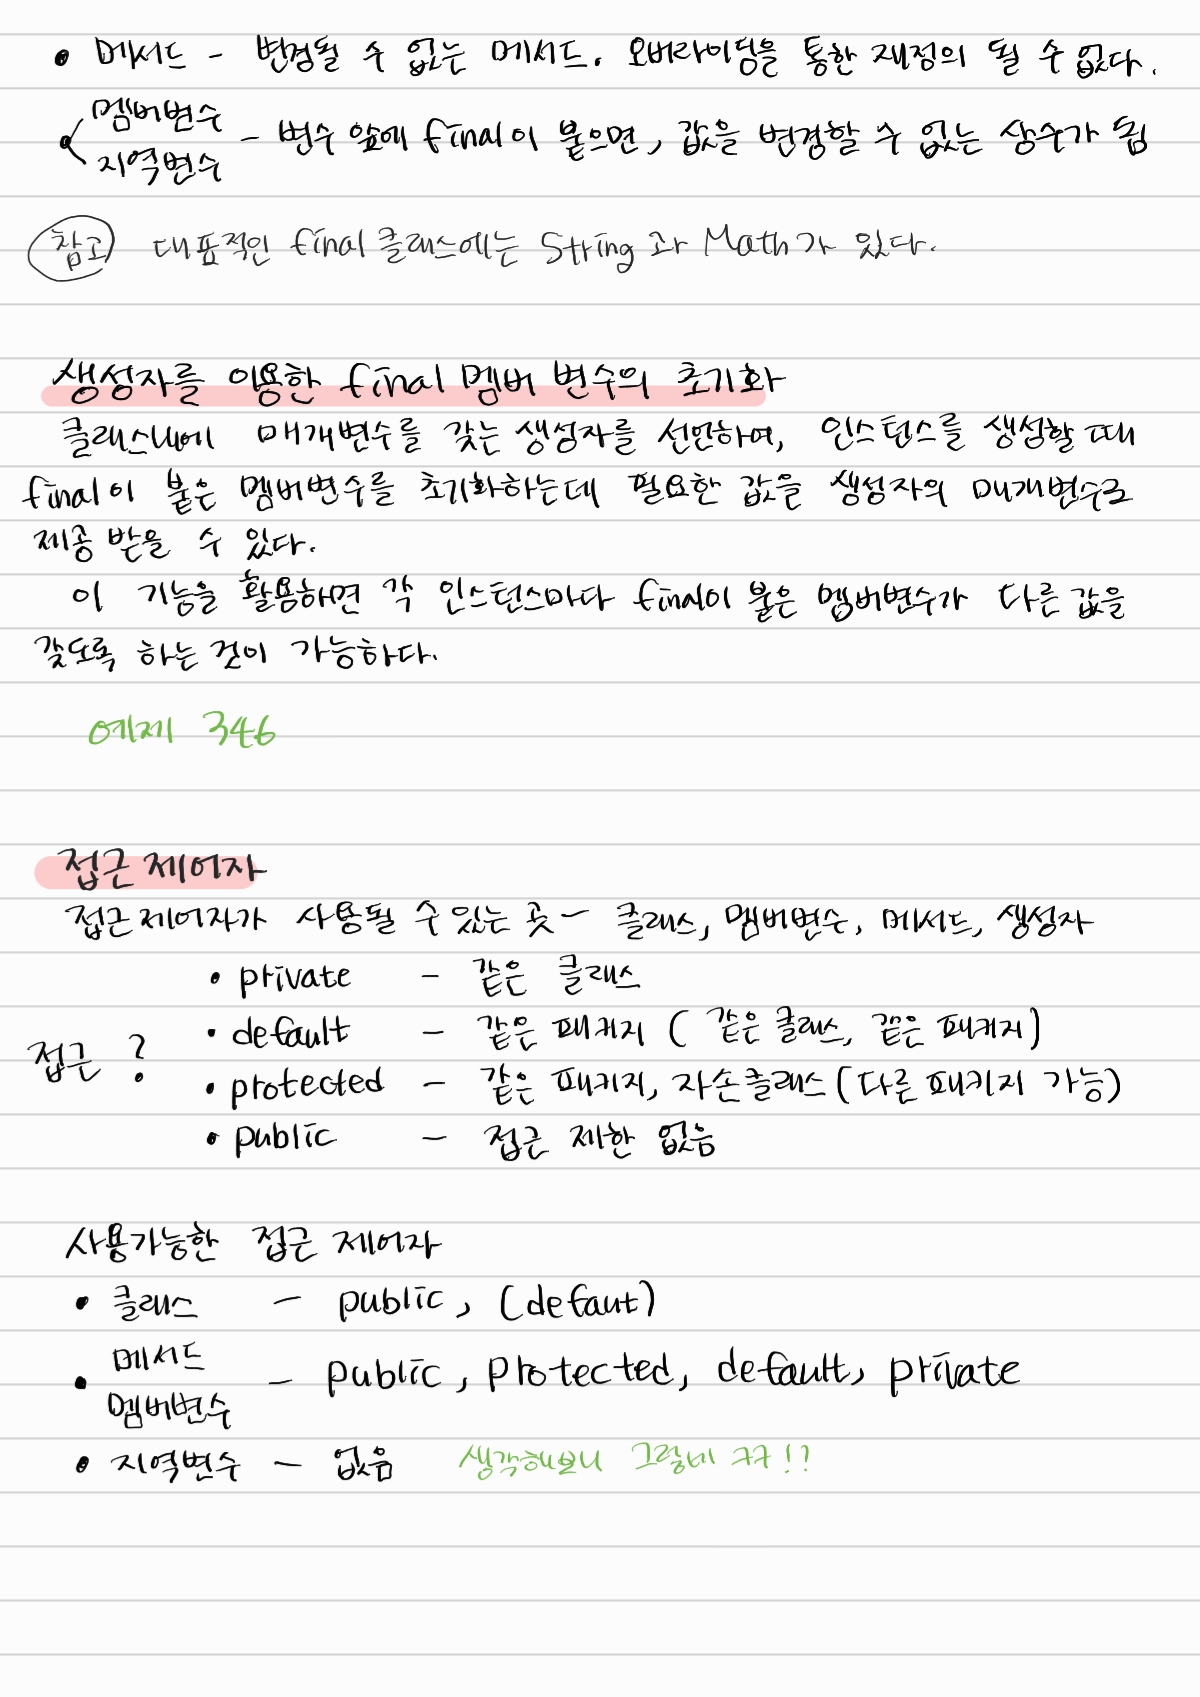 • 메서드 - 변경될 수 없는 메서드. 오버라이딩을 통한 재정의 될 수 없다.
• 멤버변수
지역변수 - 변수 앞에 final이 붙으면, 값을 변경할 수 없는 상수가 됨
참고 대표적인 final 클래스에는 String과 Math가 있다.
생성자를 이용한 final 멤버 변수의 초기화
클래스내에 매개변수를 갖는 생성자를 선언하여, 인스턴스를 생성할 때
final이 붙은 멤버변수를 초기화하는데 필요한 값을 생성자의 매개변수로
제공 받을 수 있다.
이 기능을 활용하면 각 인스턴스마다 final이 붙은 멤버변수가 다른 값을
갖도록 하는 것이 가능하다.
예제 346
접근 제어자
접근 제어자가 사용될 수 있는 곳 - 클래스, 멤버변수, 메서드, 생성자
접근 ?
• private - 같은 클래스
• default - 같은 패키지 ( 같은 클래스, 같은 패키지 )
• protected - 같은 패키지, 자손클래스 (다른 패키지 가능)
• public - 접근 제한 없음
사용가능한 접근 제어자
• 클래스 - public, (defaut)
• 메서드
멤버변수 - public, protected, default, private
• 지역변수 - 없음 생각해보니 그렇네 ㅋㅋ!?